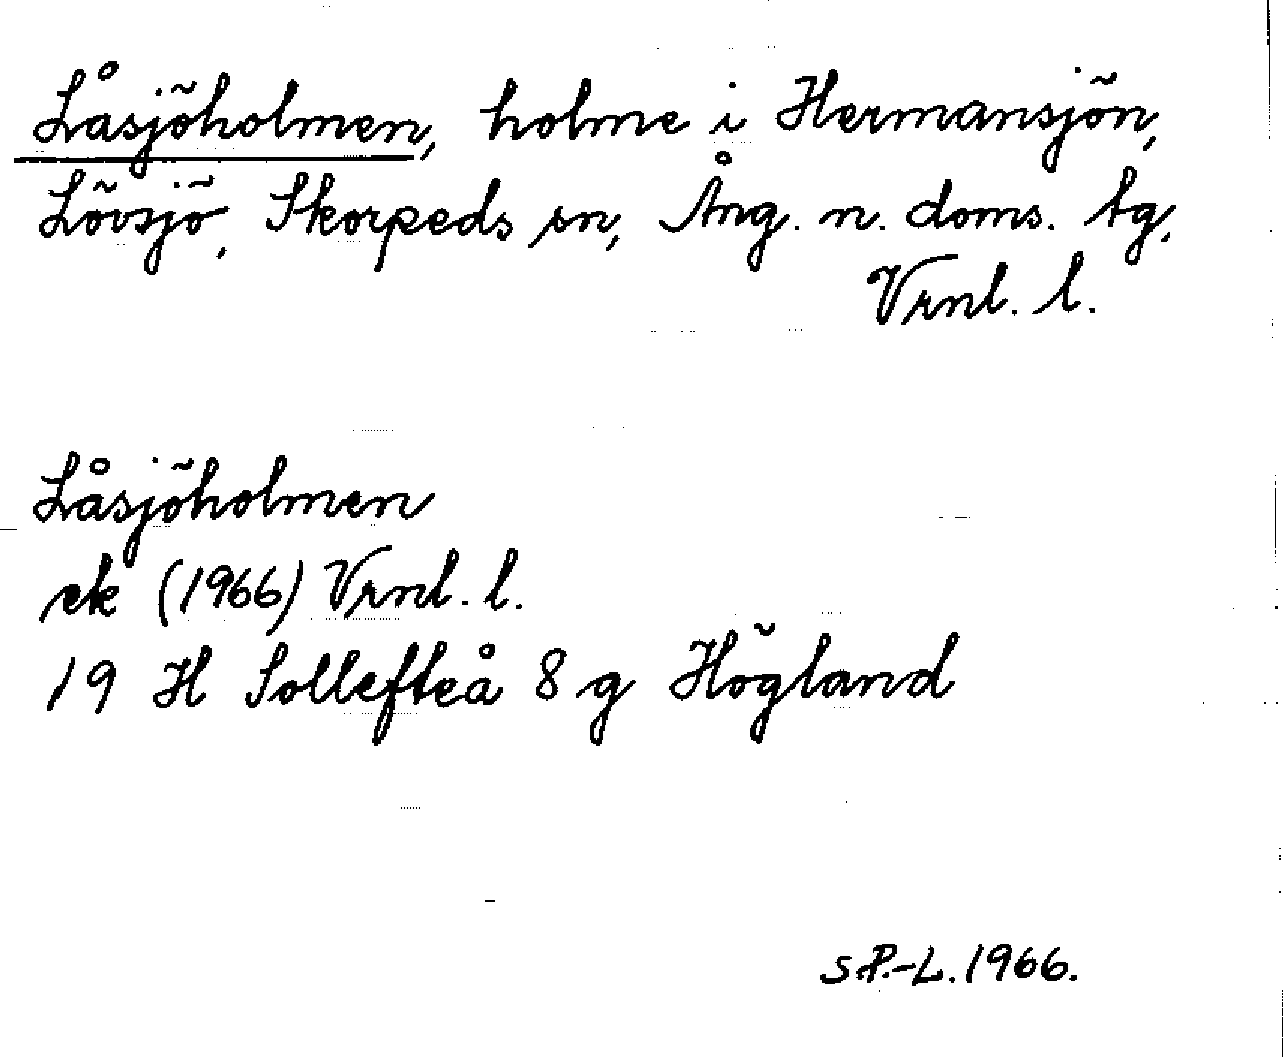 Låsjöholmen, holme i Hermansjön,
Lövsjö, Skorpeds sn, Ång. n. doms. tg,
Vrnl. l.
Låsjöholmen
ek (1966) Vrnl. l.
19 H Sollefteå 8 g Högland
S.P.-L. 1966.